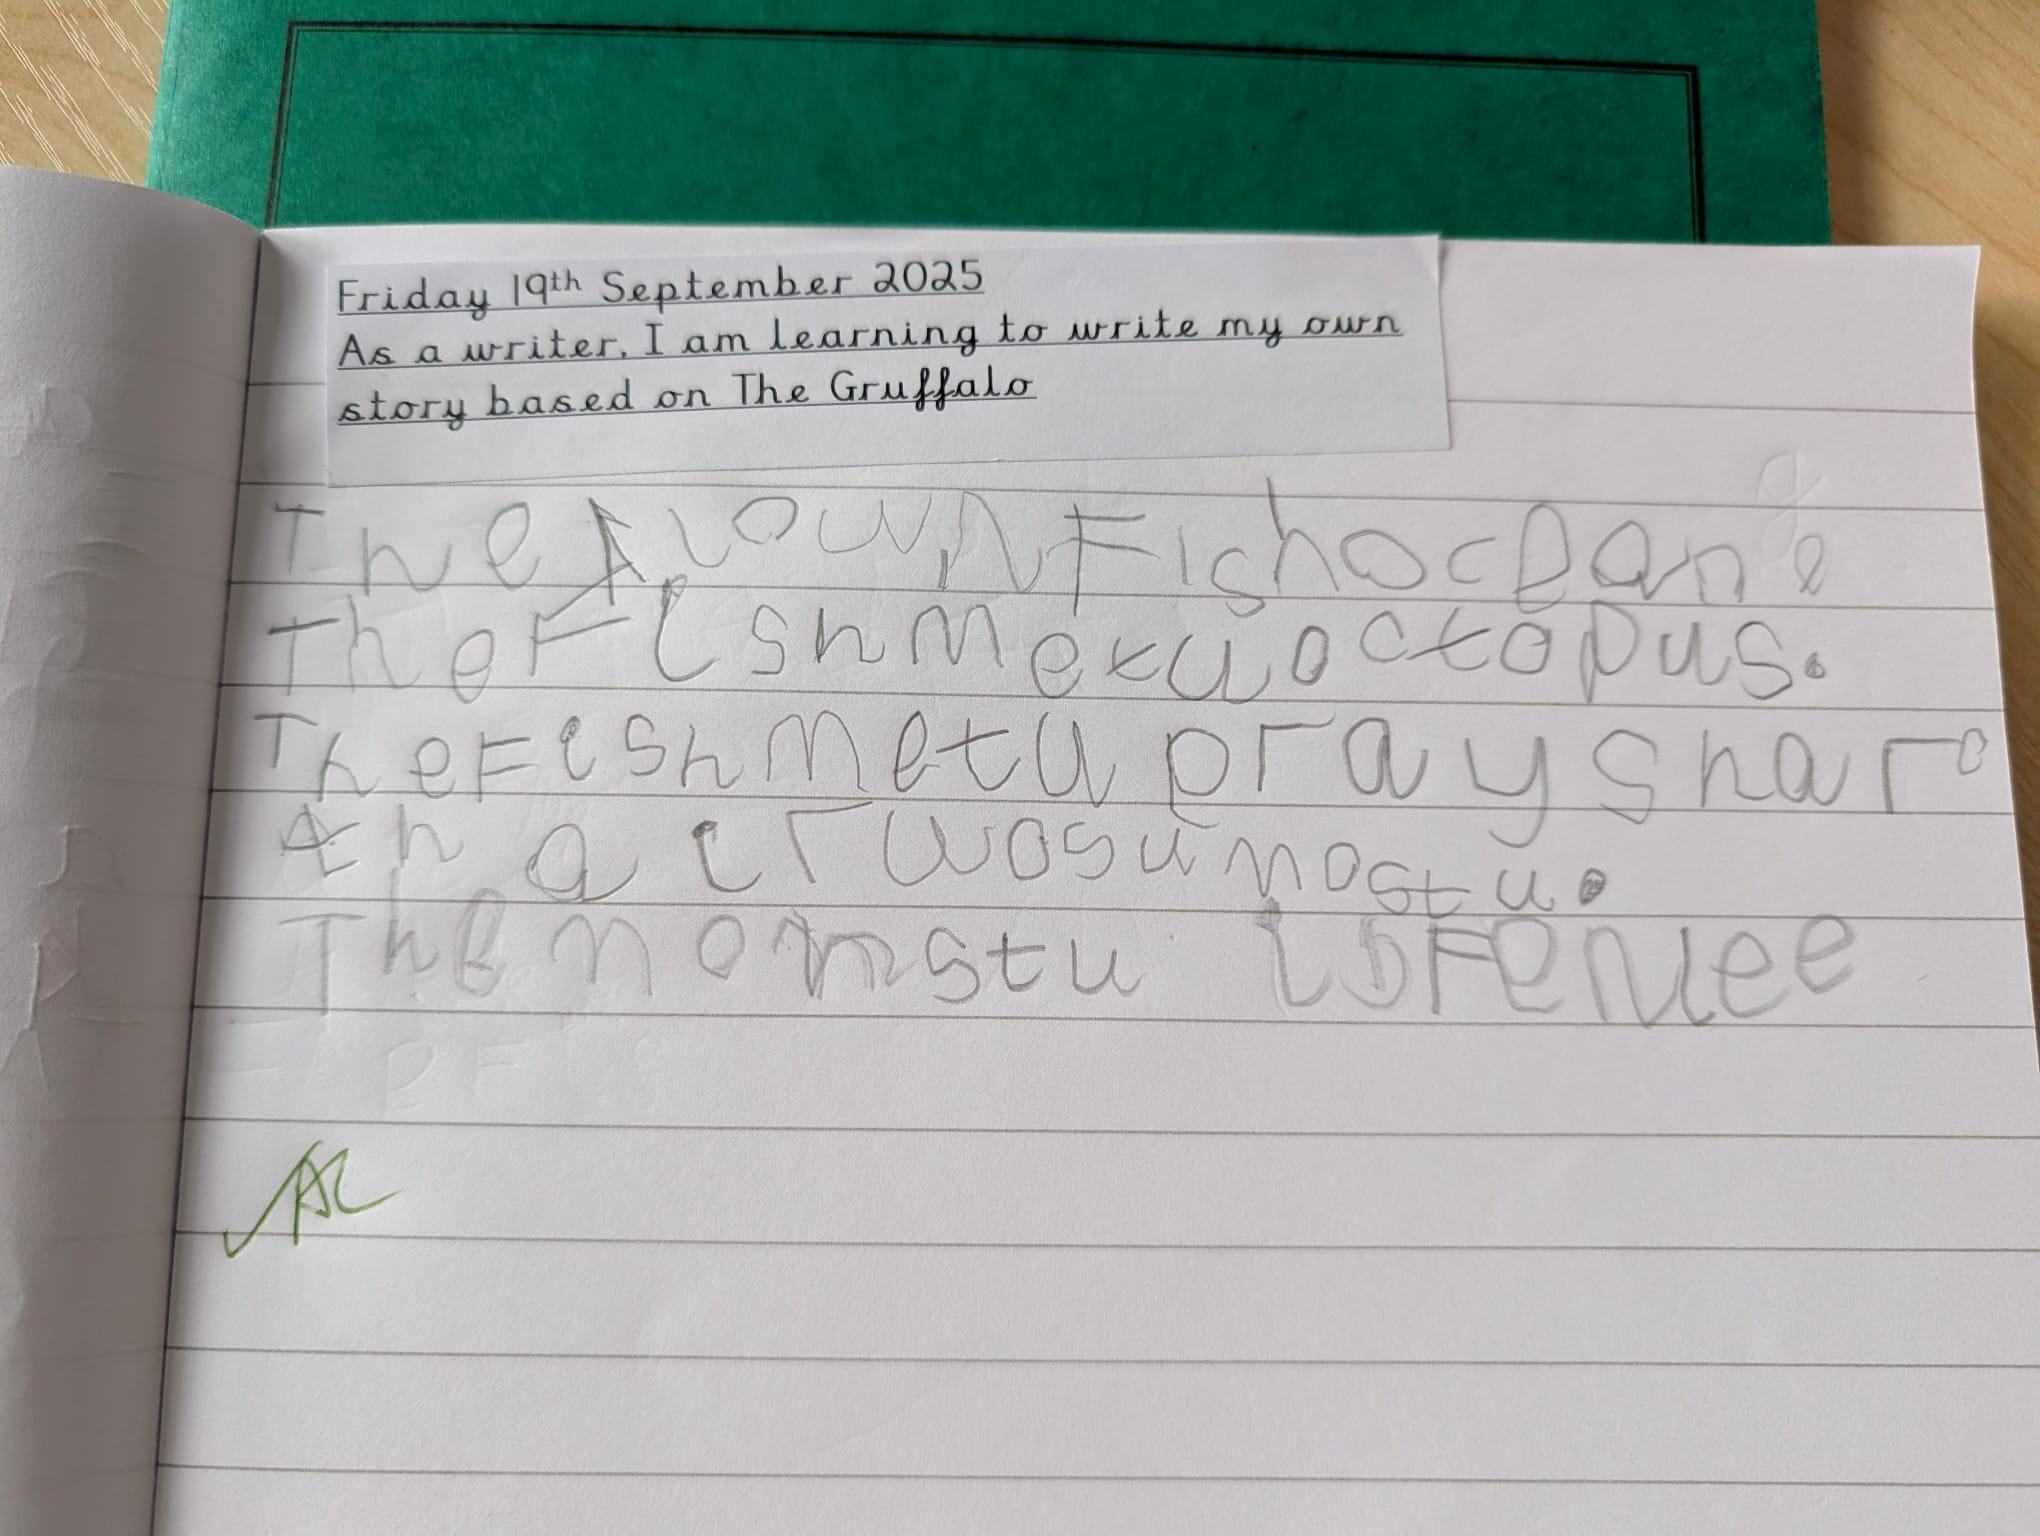 Friday 19th September 2025
As a writer, I am learning to write my own
story based on The Gruffalo
The clown Fish ocean
The Fish met u octopus.
The Fish met u pray shar
th a ir wos u mostu.
The nomstu is FeNee